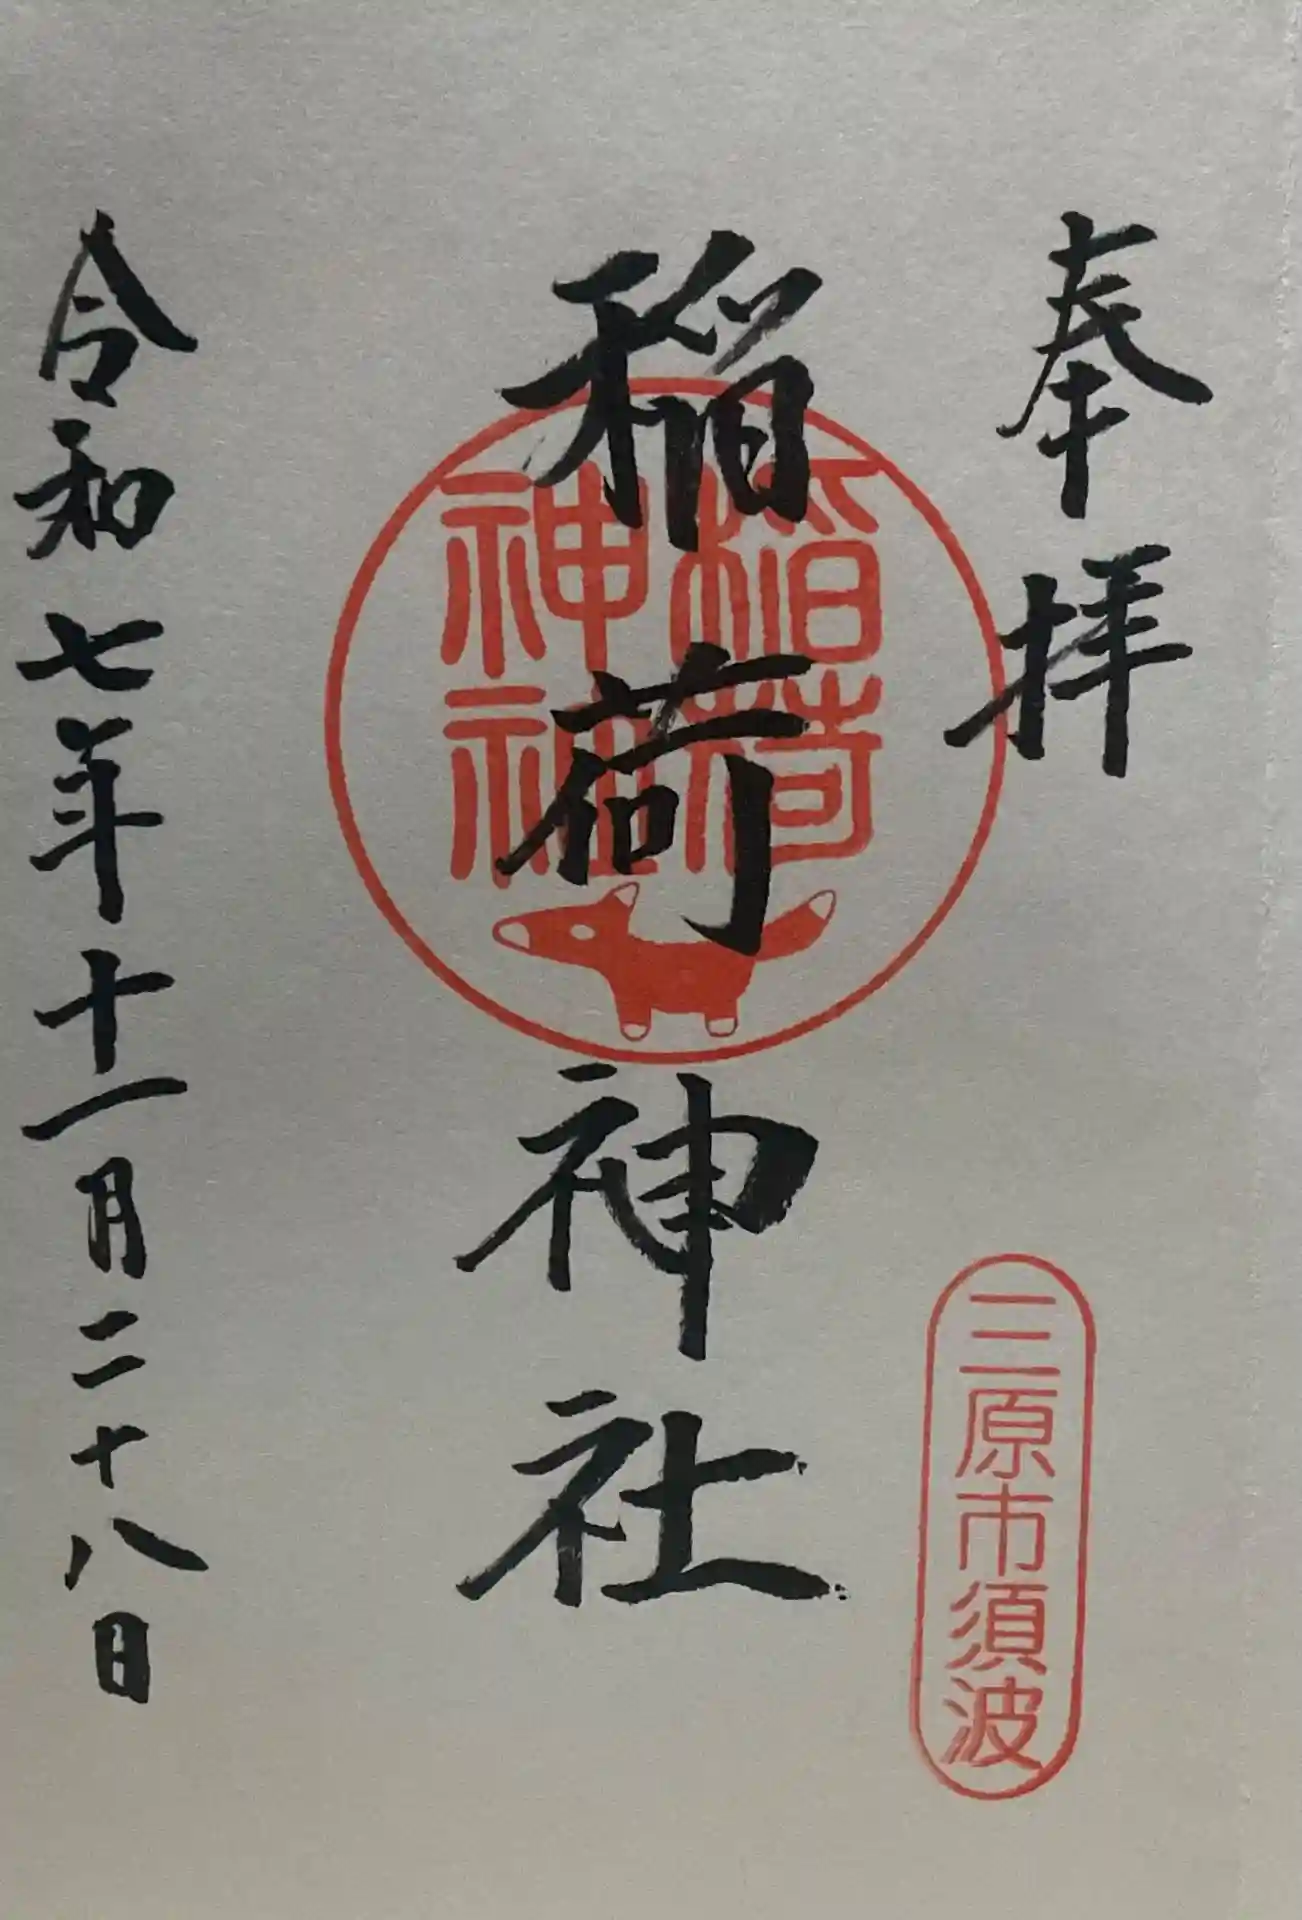 奉拝
三原市須波
稲荷神社
稲荷
神社
令和七年十一月二十八日